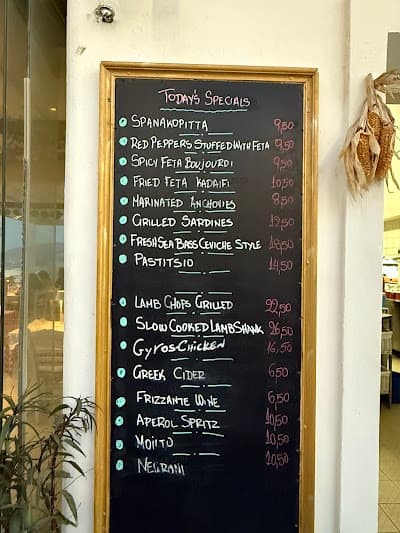 TODAY'S SPECIALS
SPANAKOPITTA 9,50
RED PEPPERS STUFFED WITH FETA 9,50
SPICY FETA BOUJOURDI 9,50
FRIED FETA KADAIFI 10,50
MARINATED ANCHOVIES 8,50
GRILLED SARDINES 12,50
FRESH SEA BASS CEVICHE STYLE 18,50
PASTITSIO 14,50
LAMB CHOPS GRILLED 22,50
SLOW COOKED LAMB SHANK 26,50
GYROS CHICKEN 16,50
GREEK CIDER 6,50
FRIZZANTE WINE 6,50
APEROL SPRITZ 10,50
MOJITO 10,50
NEGRONI 10,50